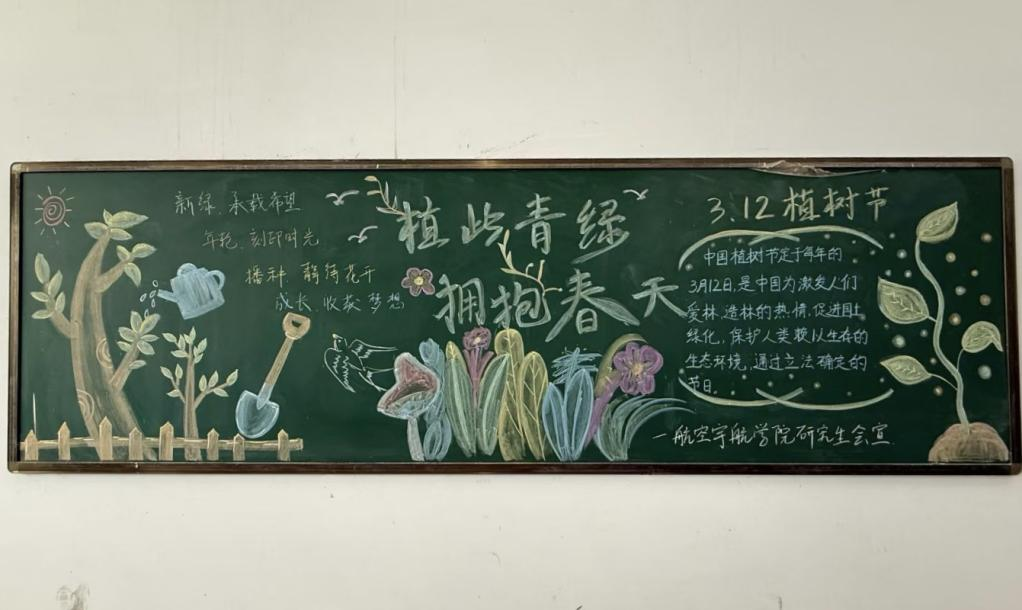 新绿、承载希望
年轮、刻印时光
播种、静待花开
成长、收获梦想
植此青绿
拥抱春天
3.12植树节
中国植树节定于每年的
3月12日,是中国为激发人们
爱林、造林的热情,促进国土
绿化,保护人类赖以生存的
生态环境,通过立法确定的
节日。
—航空宇航学院研究生会宣